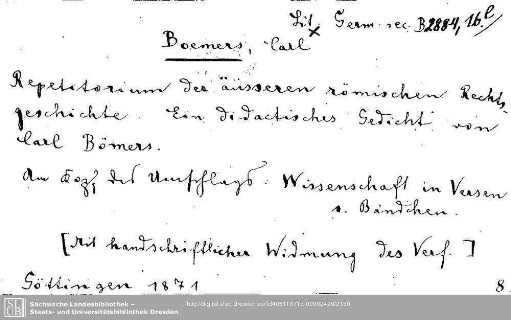 Lit. Germ. rec. B 2884, 16 l
Boemers, Carl
Repetitorium der äusseren römischen Rechts-
geschichte. Ein didactisches Gedicht von
Carl Bömers.
Am Kopf des Umschlags: Wissenschaft in Versen
1. Bändchen.
[Mit handschriftlicher Widmung des Verf.]
Göttingen 1871
8
SLUB
Sächsische Landesbibliothek –
Staats- und Universitätsbibliothek Dresden